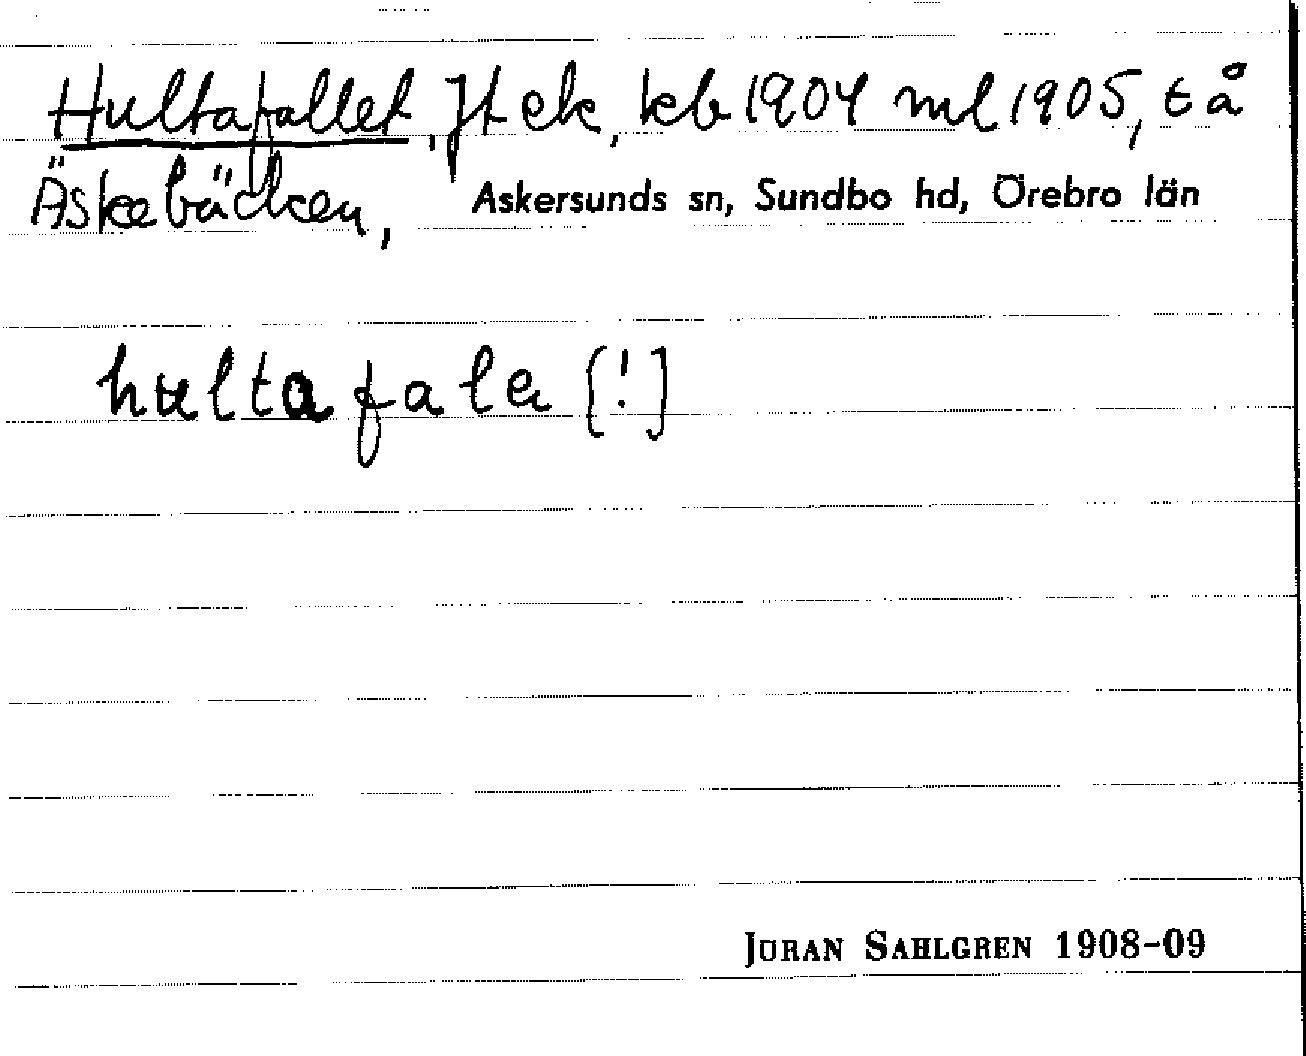 Hultafallet, Jt ek, kb 1904 ml 1905, t å
Äskebäcken, Askersunds sn, Sundbo hd, Örebro län
hultafalə [!]
JÖRAN SAHLGREN 1908-09